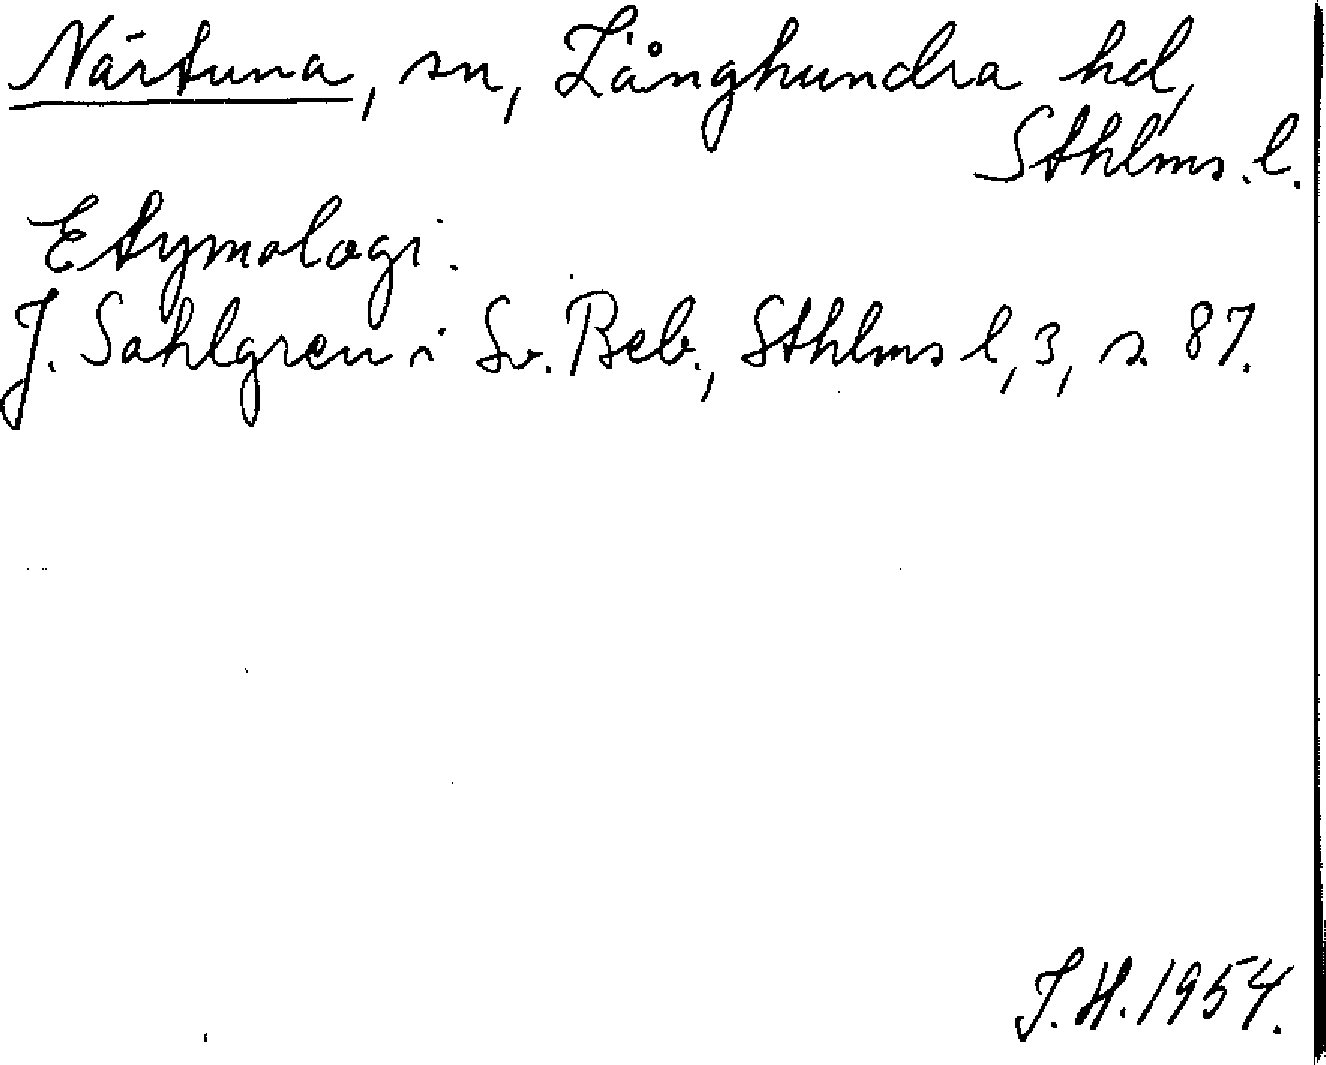 Närtuna, sn, Långhundra hd,
Sthlms. l.
Etymologi.
J. Sahlgren i Sv. Beb., Sthlms l, 3, s. 87.
J. H. 1954.